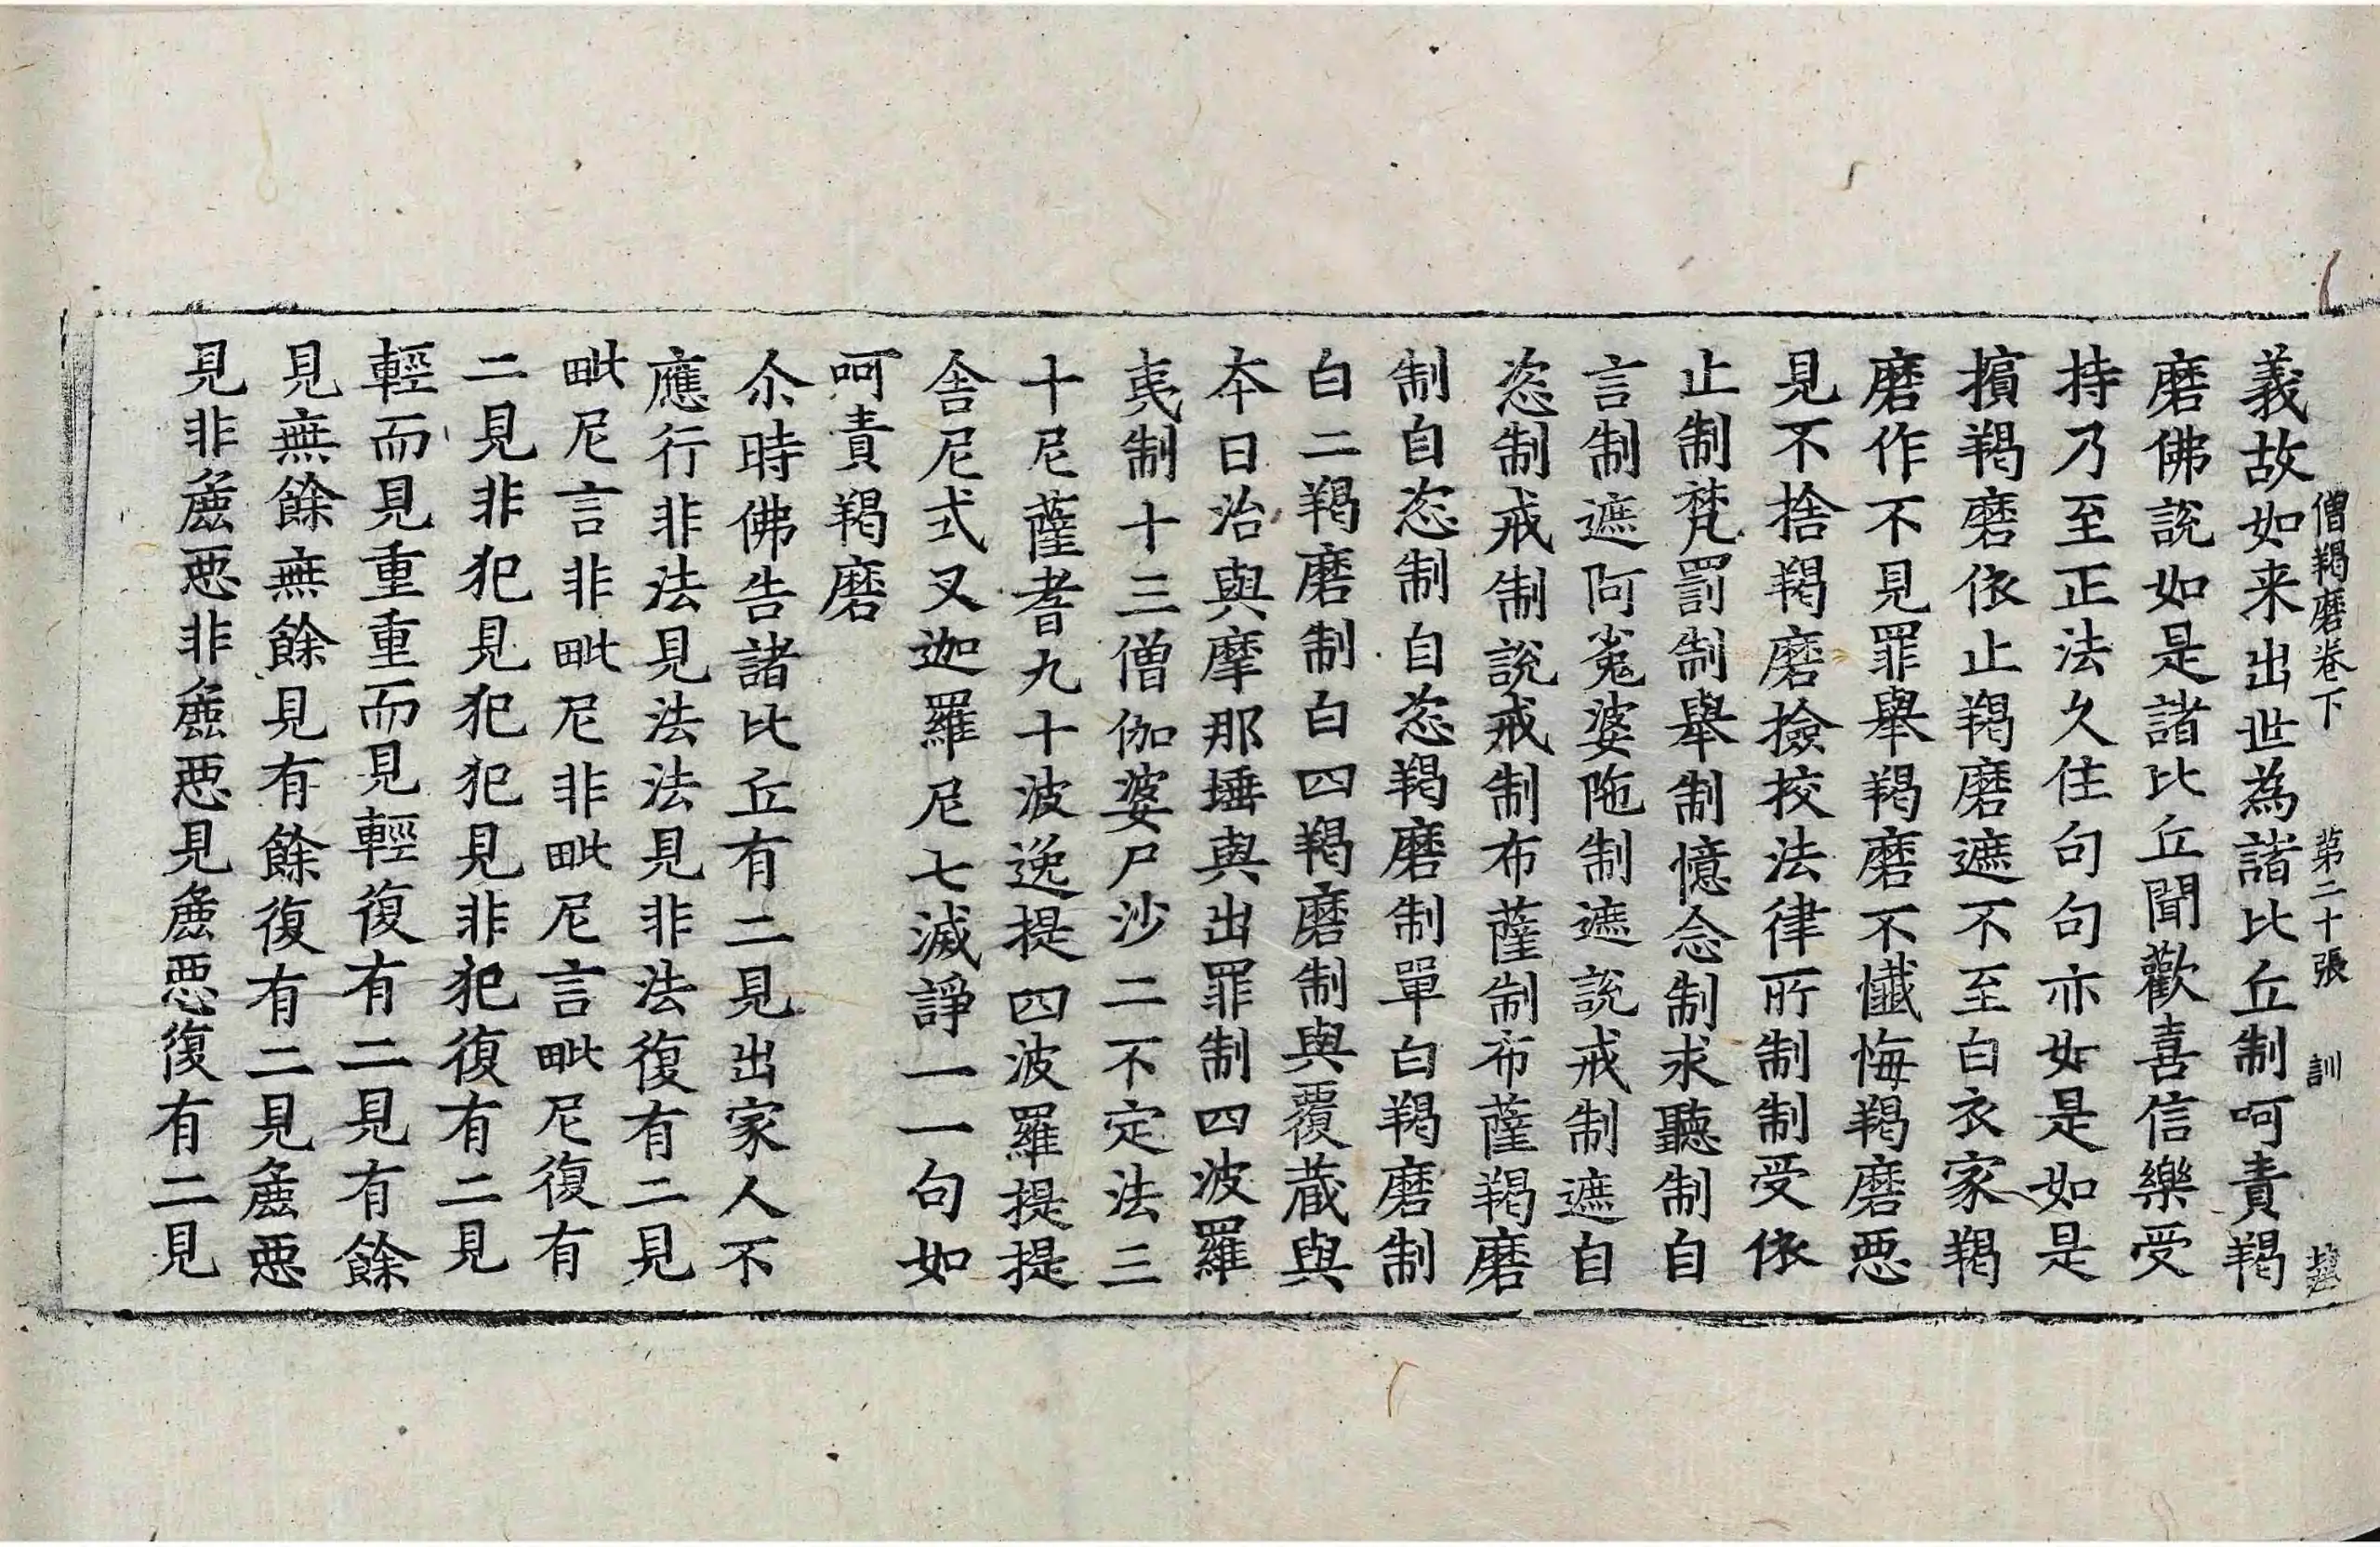 僧羯磨卷下 第二十張 訓
義故如来出世為諸比丘制呵責羯
磨佛說如是諸比丘聞歡喜信樂受
持乃至正法久住句句亦如是如是
擯羯磨依止羯磨遮不至白衣家羯
磨作不見罪舉羯磨不懺悔羯磨惡
見不捨羯磨撿挍法律所制制受依
止制梵罰制舉制憶念制求聽制自
言制遮阿㝹婆陁制遮說戒制遮自
恣制戒制說戒制布薩制布薩羯磨
制自恣制自恣羯磨制單白羯磨制
白二羯磨制白四羯磨制與覆藏與
夲日治與摩那埵與出罪制四波羅
夷制十三僧伽婆尸沙二不定法三
十尼薩耆九十波逸提四波羅提提
舍尼式叉迦羅尼七滅諍一一句如
呵責羯磨
尒時佛告諸比丘有二見出家人不
應行非法見法法見非法復有二見
毗尼言非毗尼非毗尼言毗尼復有
二見非犯見犯犯見非犯復有二見
輕而見重重而見輕復有二見有餘
見無餘無餘見有餘復有二見麁惡
見非麁惡非麁惡見麁惡復有二見